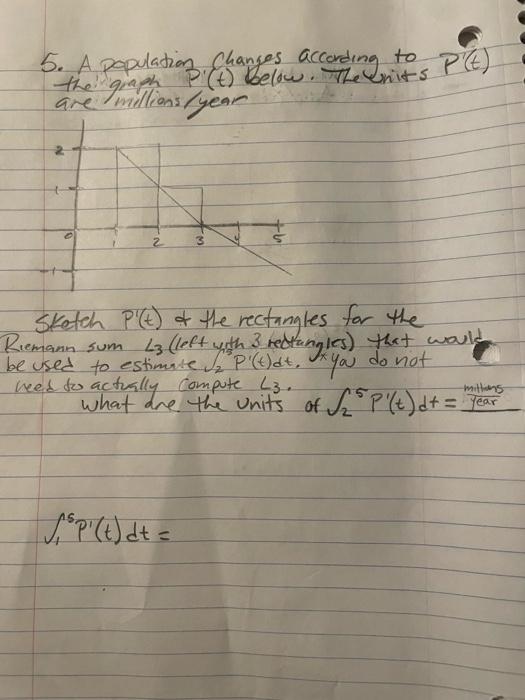 5. A population Changes according to P'(t)
the graph P'(t) below. The units
are millions/year
2
1
0 1 2 3 4 5
-1
Sketch P'(t) & the rectangles for the
Riemann sum L3 (left with 3 rectangles) that would
be used to estimate ∫₂⁵ P'(t)dt. *you do not
need to actually compute L3.
What are the units of ∫₂⁵ P'(t)dt = millions/year
∫₁⁵ P'(t)dt =